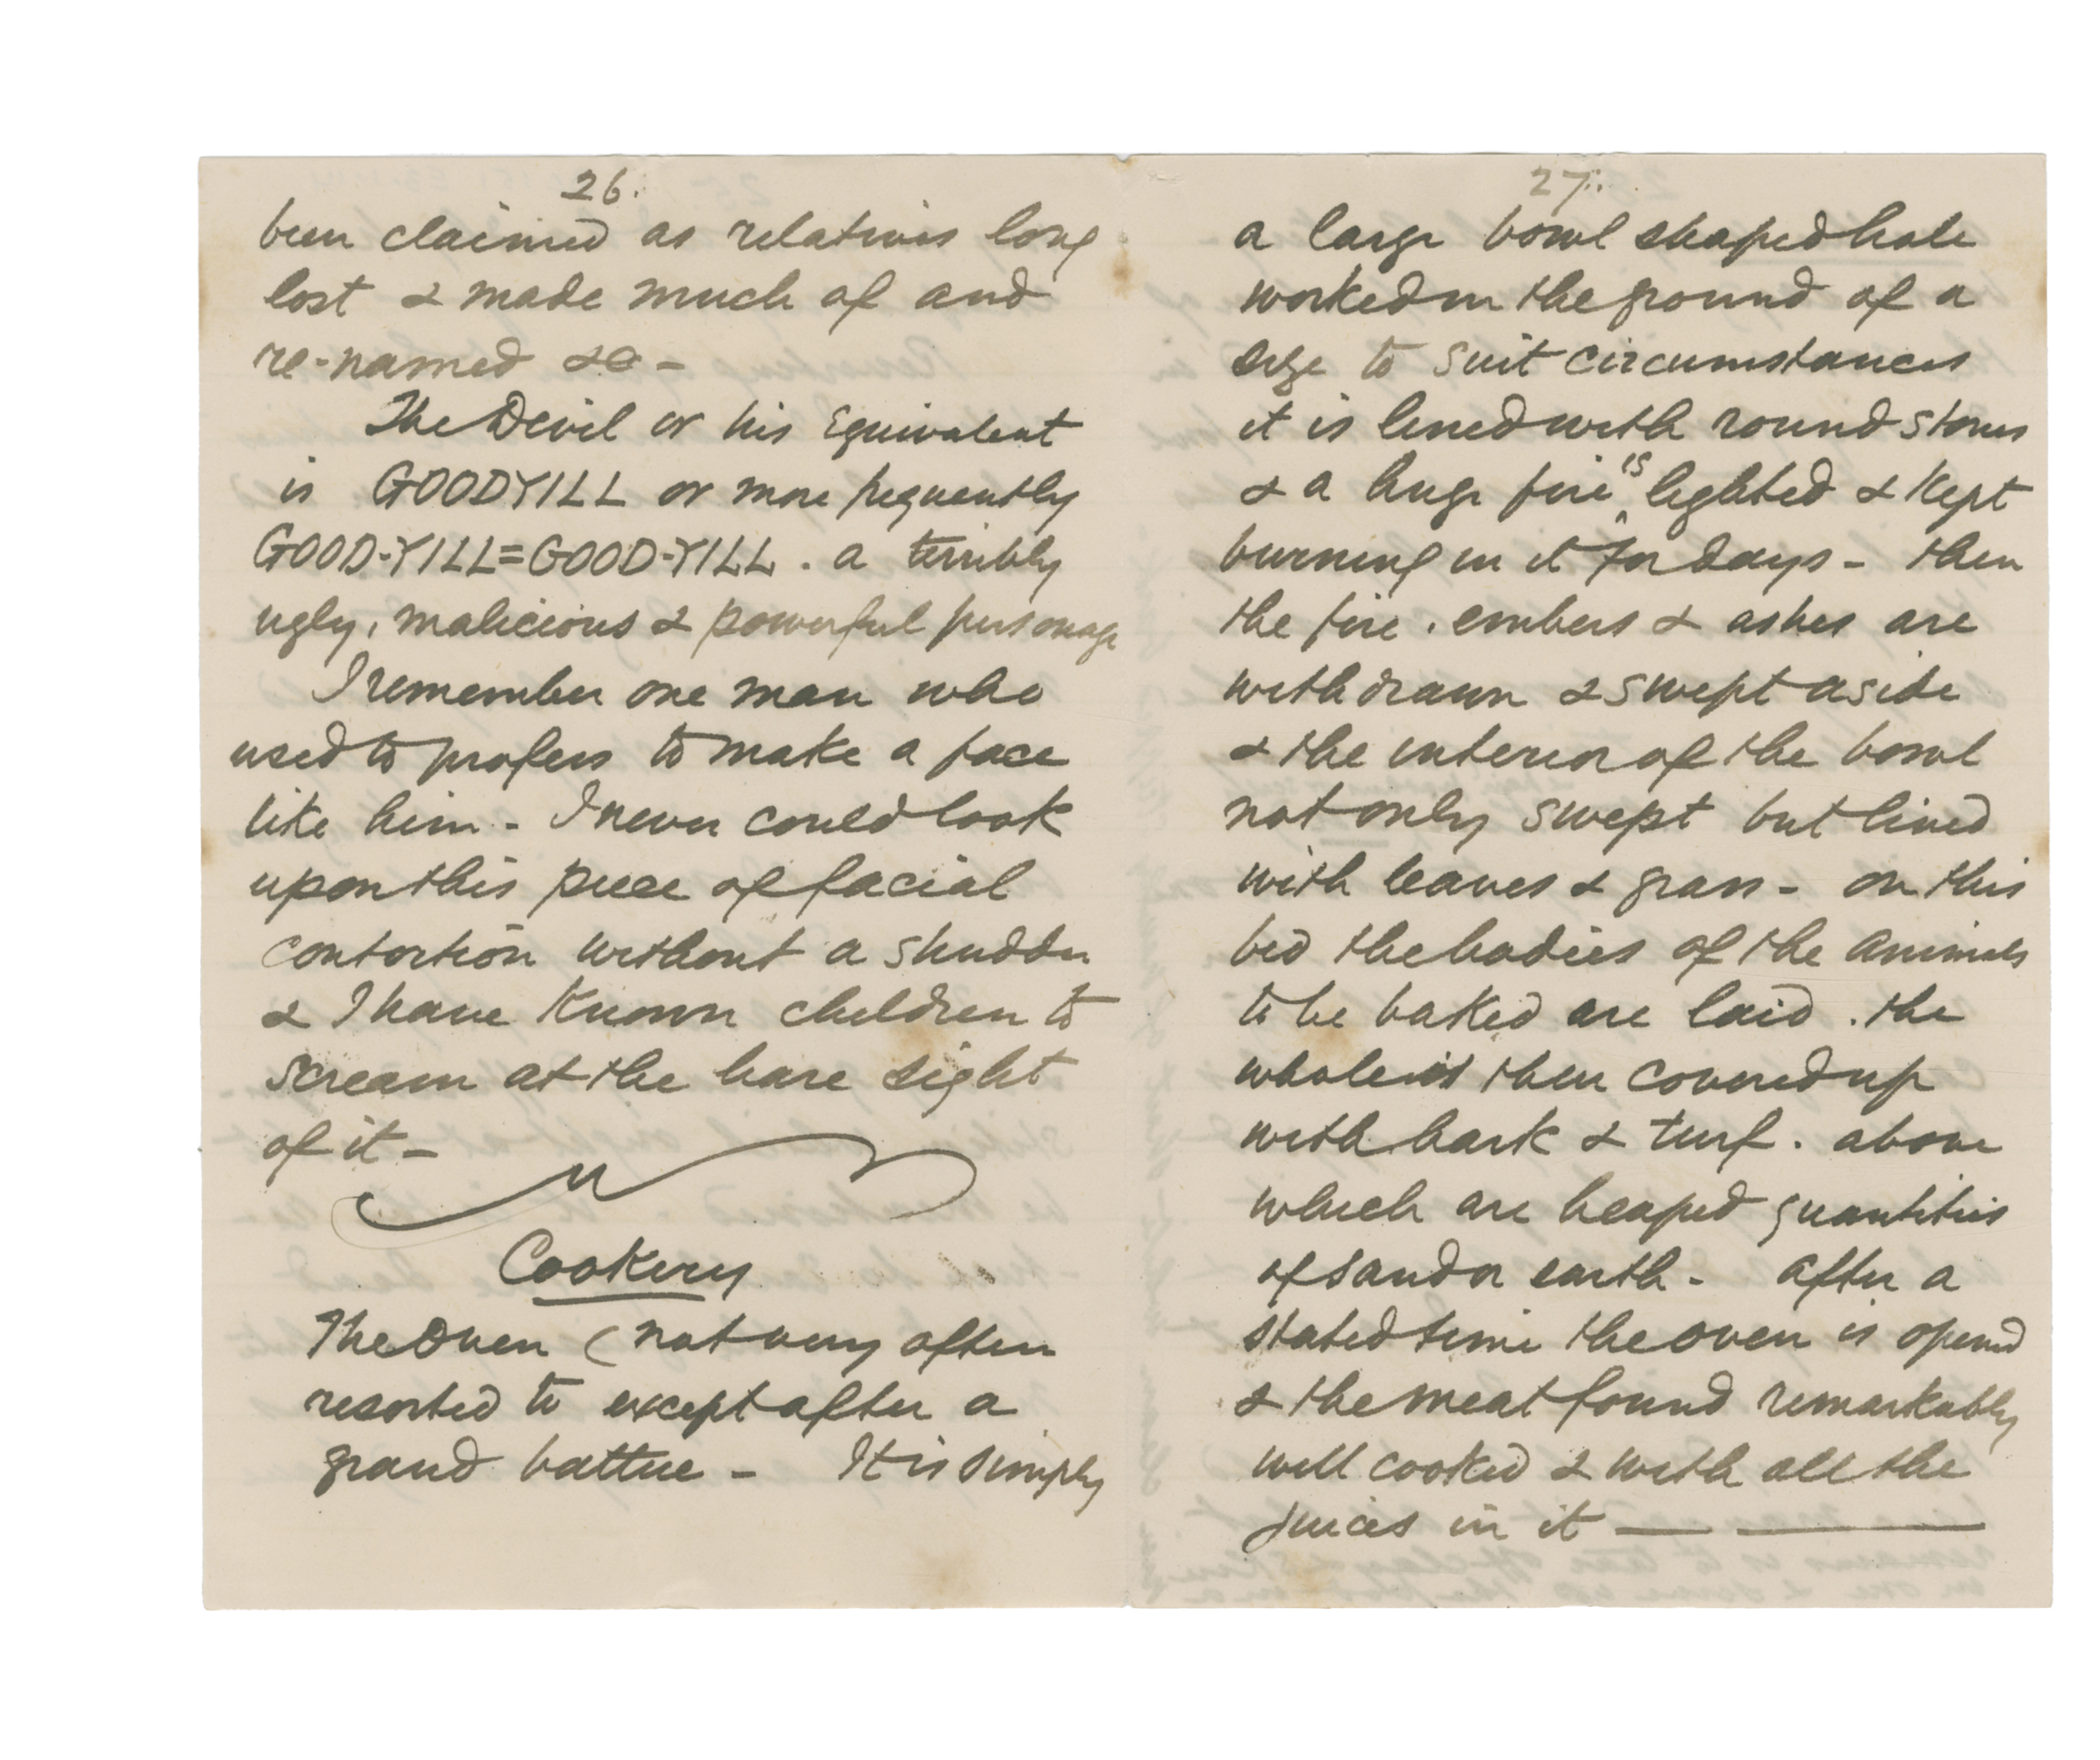 26.
been claimed as relatives long
lost & made much of and
re-named &c -
The Devil or his Equivalent
is GOODYILL or more frequently
GOOD-YILL=GOOD-YILL. a terribly
ugly, malicious & powerful personage
I remember one man who
used to profess to make a face
like him - I never could look
upon this piece of facial
contortion without a shudder
& I have Known children to
scream at the bare sight
of it -
Cookery
The Oven ( not very often
resorted to except after a
grand battue - It is simply
27.
a large bowl shaped hole
worked in the ground of a
size to suit circumstances
it is lined with round stones
& a huge fire is lighted & kept
burning in it for days - then
the fire. embers & ashes are
withdrawn & swept aside
& the interior of the bowl
not only swept but lined
with leaves & grass - on this
bed the bodies of the animals
to be baked are laid. the
whole is then covered up
with bark & turf. above
which are heaped quantities
of sand or earth - after a
stated time the oven is opened
& the meat found remarkably
well cooked & with all the
juices in it — —